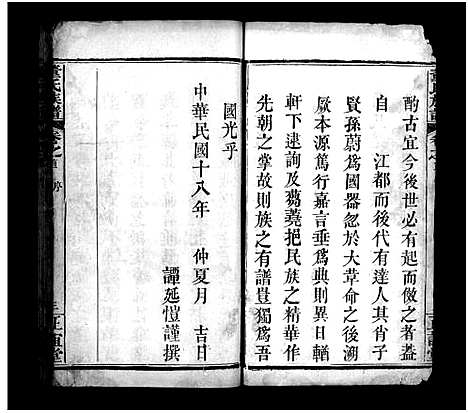 酌古宜今後世必有起而倣之者蓋
自　江都而後代有達人其肖子
賢孫蔚爲國器忽於大革命之後溯
厥本源篤行嘉言垂爲典則異日輶
軒下逮詢及蒭蕘挹民族之精華作
先朝之掌故則族之有譜豈獨爲吾
國光乎
中華民國十八年　仲夏月　吉日
譚延愷謹撰
董氏族譜
卷之首
三正直堂